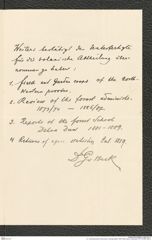 Weiters bestätigt der Unterfertigte
für die botanische Abtheilung über-
nommen zu haben:
1. field and garden crops of the North-
Western provinces.
2. Review of the forest administr.
1873/74 — 1886/87.
3. Reports of the forest School
Dehra Dun 1881–1889.
4 Reviews of
1889.
Dr. G. Beck